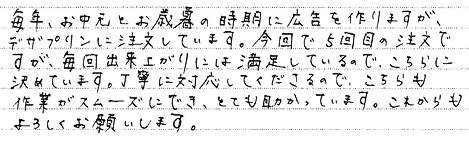 毎年、お中元とお歳暮の時期に広告を作りますが、
デザプリンに注文しています。今回で5回目の注文で
すが、毎回出来上がりには満足しているので、こちらに
決めています。丁寧に対応してくださるので、こちらも
作業がスムーズにでき、とても助かっています。これからも
よろしくお願いします。